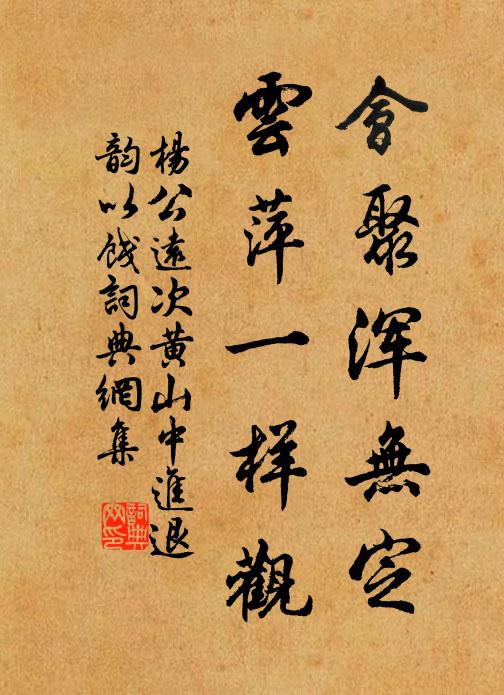 會聚浑無定
雲萍一样觀
楊公遠次黄山中進退
韵以餞詞典網集
詞典网印